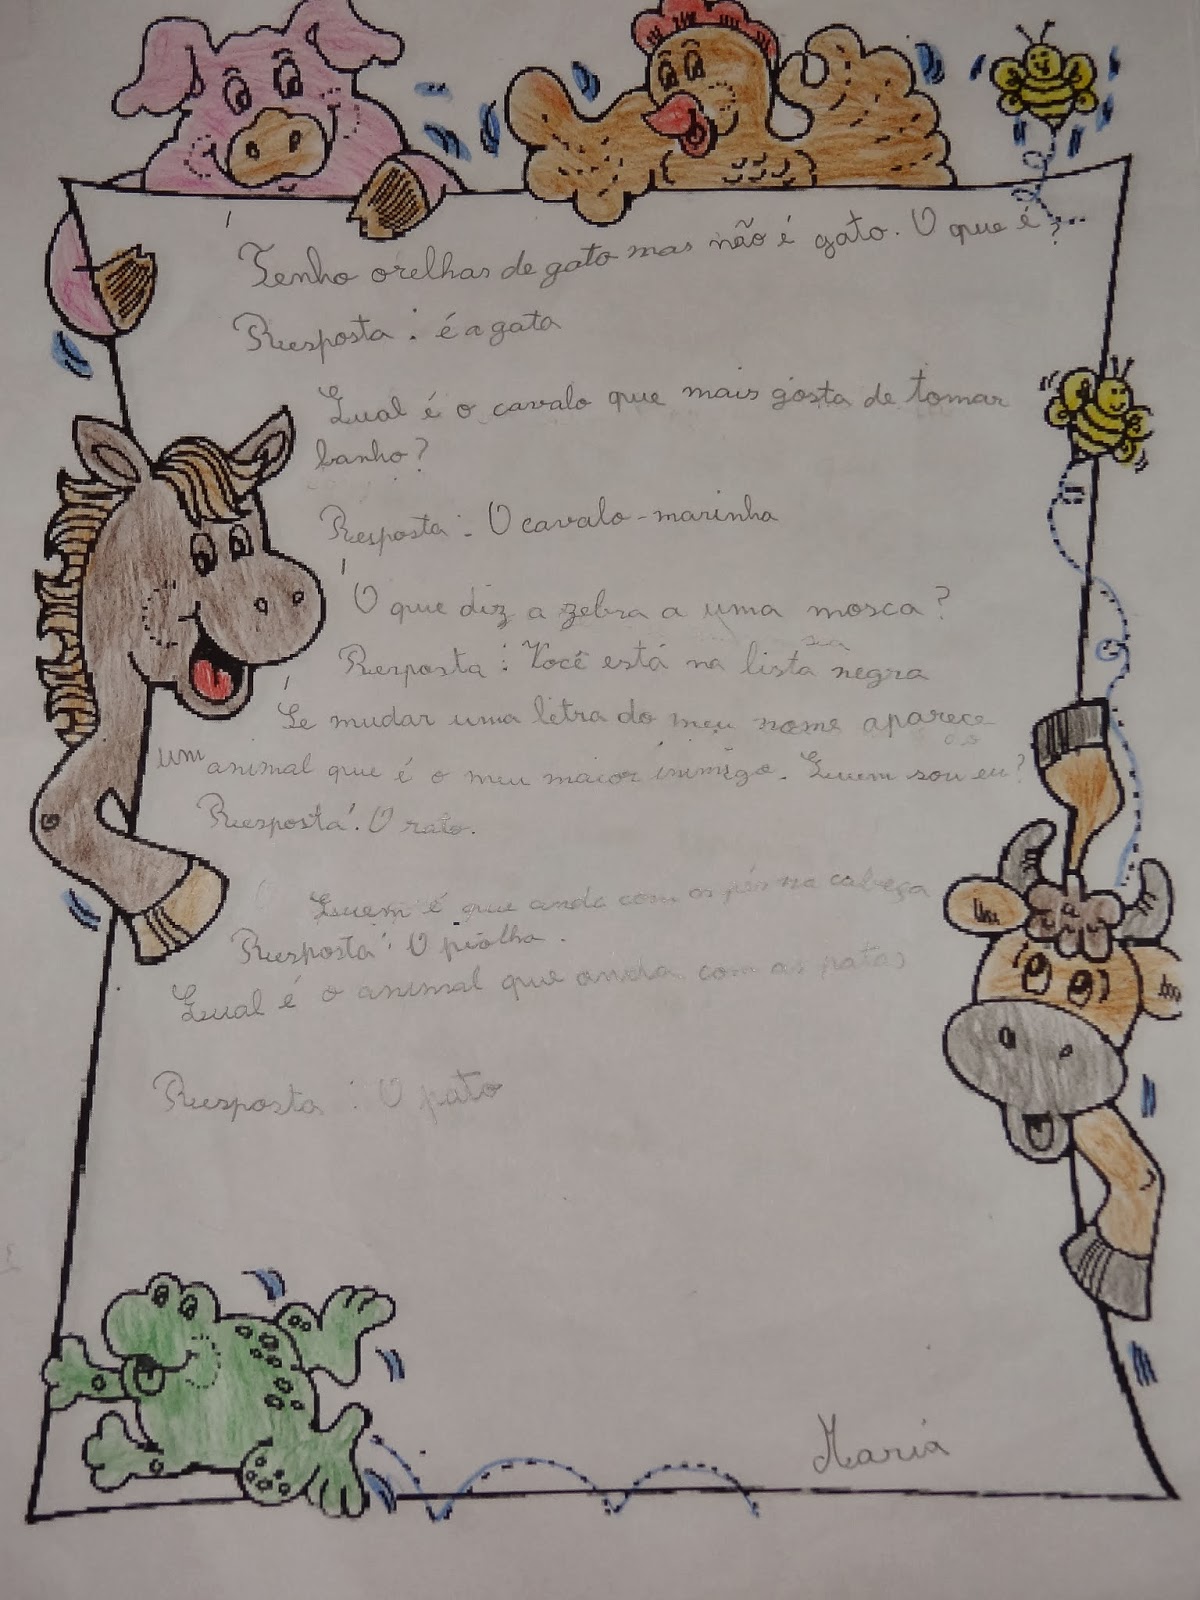 Tenho orelhas de gato mas não é gato. O que é?
Resposta: é a gata
Qual é o cavalo que mais gosta de tomar
banho?
Resposta: O cavalo-marinho
O que diz a zebra a uma mosca?
Resposta: Você está na sua lista negra
Se mudar uma letra do meu nome aparece
um animal que é o meu maior inimigo. Quem sou eu?
Resposta: O rato.
Quem é que anda com os pés na cabeça
Resposta: O piolho.
Qual é o animal que anda com as patas
Resposta: O pato
Maria